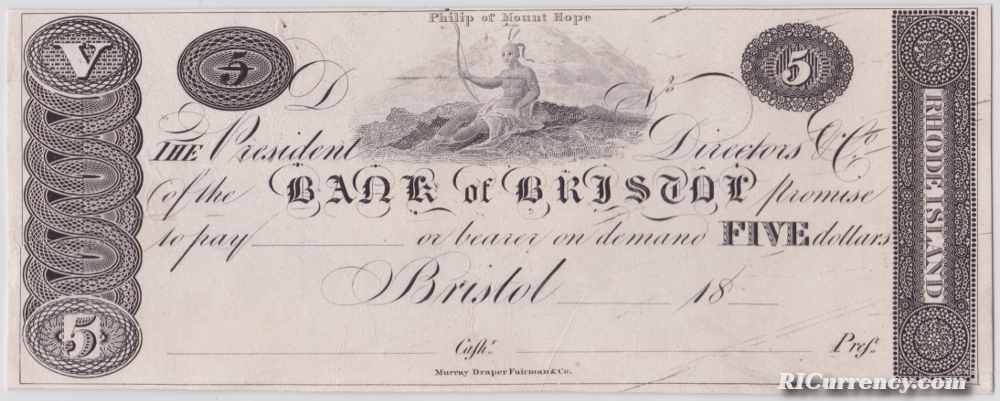 Philip of Mount Hope
V
5
5
D
No
THE President Directors & Co.
of the BANK of BRISTOL promise
to pay or bearer on demand FIVE dollars
Bristol 18
5
Cashr. Prest.
Murray Draper Fairman & Co.
RHODE ISLAND
RICurrency.com